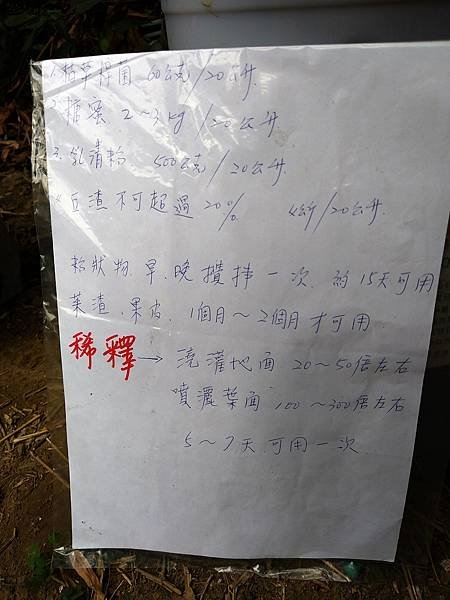 1. 枯草桿菌 60公克/20公升
2. 糖蜜 2~3kg/20公升
3. 乳清粉 500公克/20公升
4. 豆渣不可超過20% 4公斤/20公升
粉狀物.早.晚攪拌一次.約15天可用
葉渣.果皮.1個月~2個月才可用
稀釋→澆灌地面20~50倍左右
噴灑葉面100~300倍左右
5~7天.可用一次